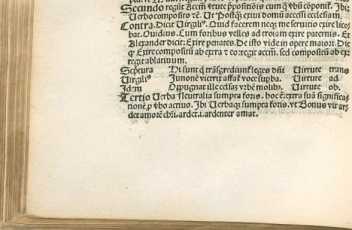 Secundo regit Accm̄ virtute p̄positiõis cum q̄ vsū cōponit̃. Ibi
Verbo composito rē. Ut Postq̄ exiui domū accessi ecclesiam.
Contra Dicit Virgiliꝰ. Quid facerem neqz me seruitio exire lice
bat. Ouidius. Cum foribus velles ad troiam exire paternis. Et
Alexander dicit Exire penates. De isto vide in opere maiori. Dic
q̄ Exire compositū ab ex ⁊ eo regit accm̄. sed compositū ab ex
regit ablatiuum.
Scptura Di sunt q̄ trāsgrediunt̃ leges dn̄i Virtute trans
Virgiliꝰ Junonē victrix affat̃ voce suꝑba. Virtute ad
Idem Oppugnat ille casus vrbē Virtute ob.
Tertio Verba Neutralia sumpta foris. hoc ē extra suā significa
nonē ꝓ vbo actiuo. Ibi Verbaqz sumpta foris. vt Bonus vir ar
det amorē chr̄i. ardet.i. ardenter amat.